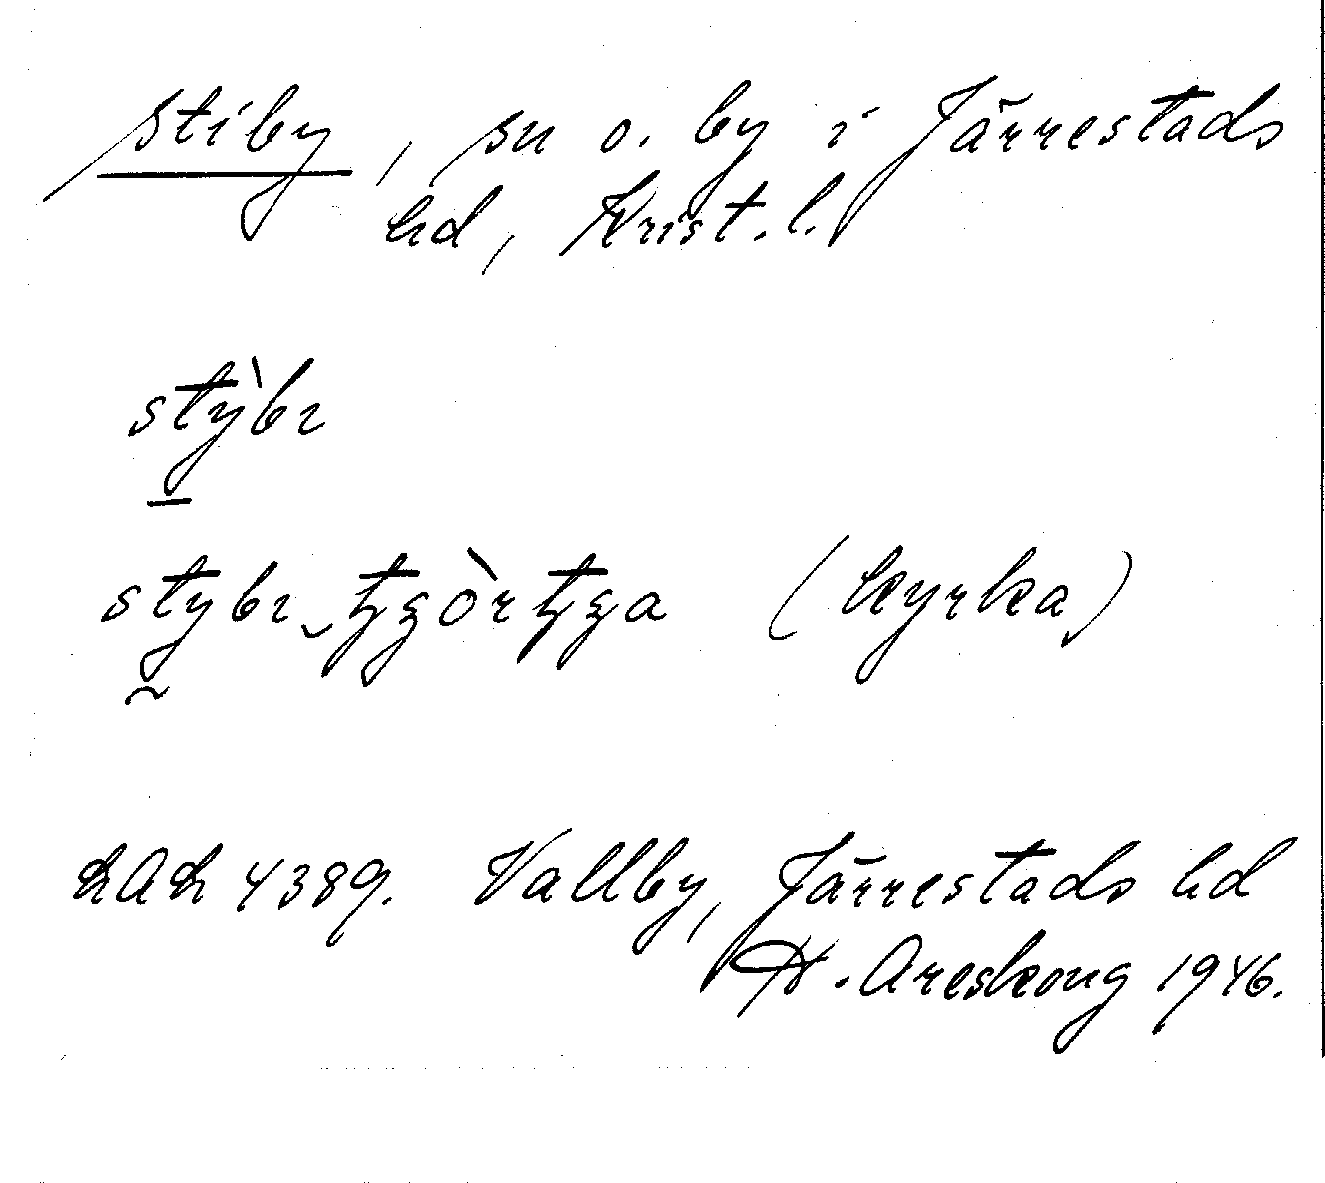 Stiby, sn o. by i Järrestads
hd, Krist. l.
stỳbı
stybı
(kyrka)
LAL 4389. Vallby, Järrestads hd
H. Areskoug 1946.